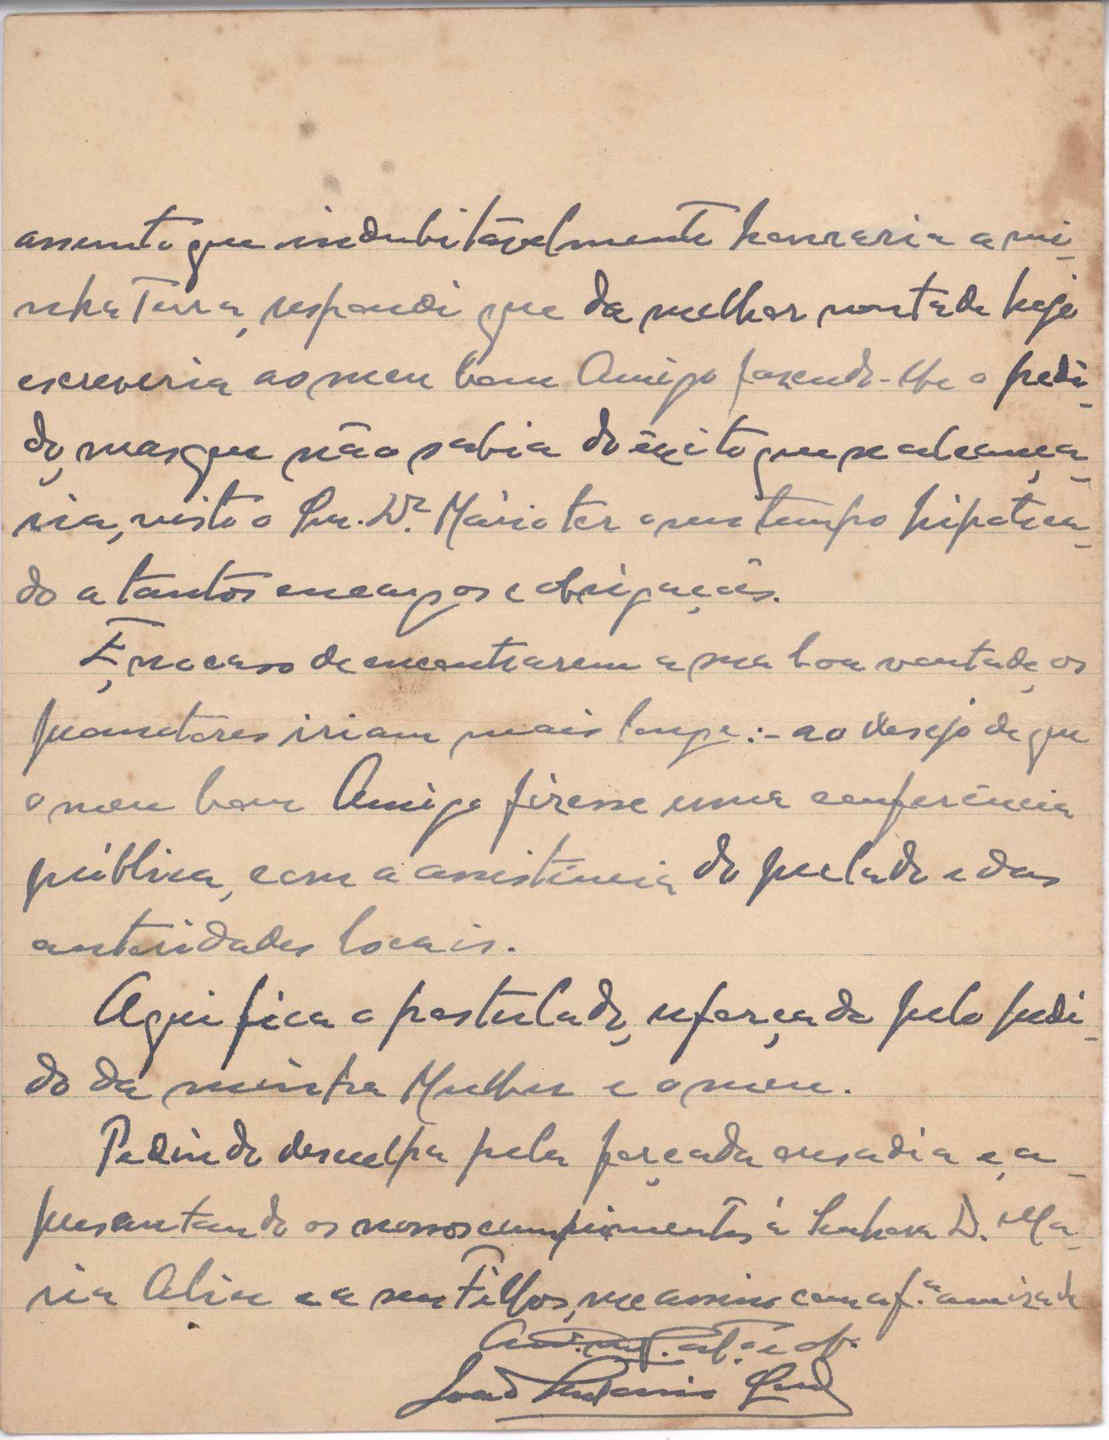 assunto que indubitàvelmente honraria a mi-
nha Terra, respondi que da melhor vontade hoje
escreveria ao meu bom Amigo fazendo-lhe o pedi-
do, mas que não sabia do êxito que se alcança-
ria, visto o Snr. Dr. Mário ter o seu tempo hipoteca-
do a tantos encargos e obrigações.
E, no caso de encontrarem a sua boa vontade, os
promotores iriam mais longe: - ao desejo de que
o meu bom Amigo fizesse uma conferência
pública, com a assistência do prelado e das
autoridades locais.
Aqui fica o postulado, reforçado pelo pedi-
do da minha Mulher e o meu.
Pedindo desculpa pela forçada ousadia e, a-
presentando os nossos cumprimentos à Senhora D. Ma-
ria Alice e a seus Filhos, me assino com a f.ª amizade
João António